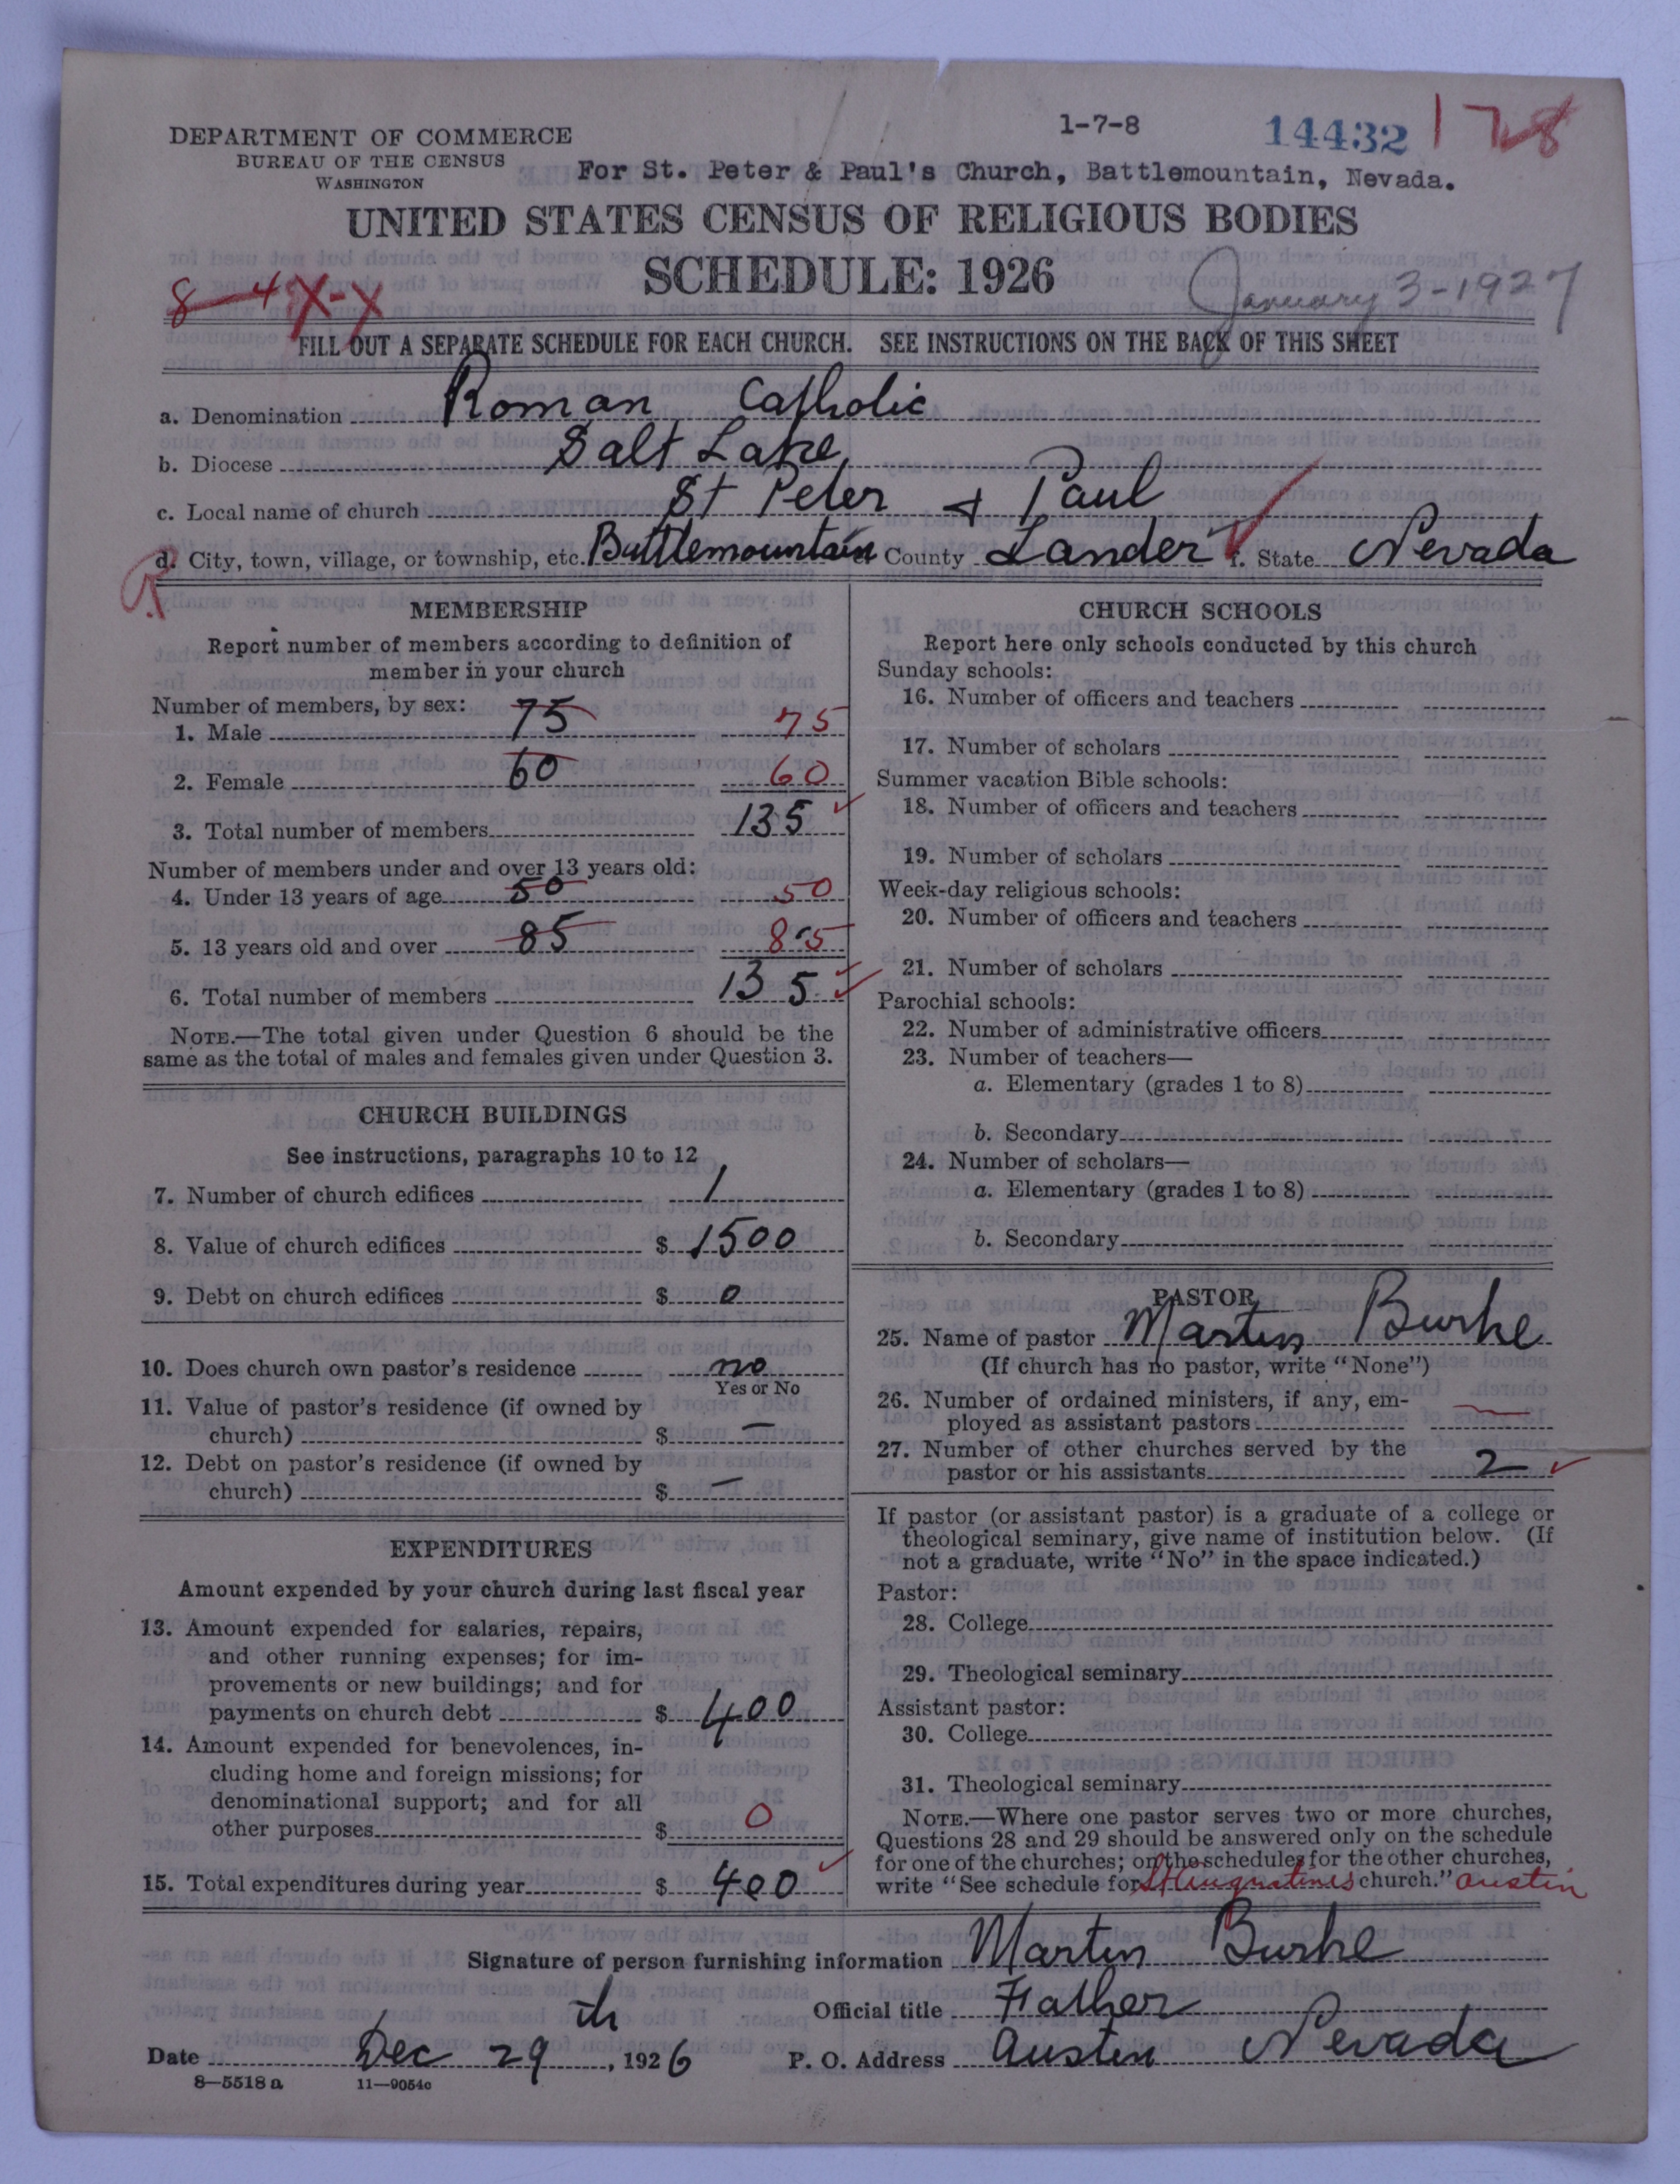 DEPARTMENT OF COMMERCE
BUREAU OF THE CENSUS
WASHINGTON
1-7-8
14432
1 7-8
For St. Peter & Paul's Church, Battlemountain, Nevada.
UNITED STATES CENSUS OF RELIGIOUS BODIES
SCHEDULE: 1926
8-4 X-X
January 3-1927
FILL OUT A SEPARATE SCHEDULE FOR EACH CHURCH. SEE INSTRUCTIONS ON THE BACK OF THIS SHEET
a. Denomination Roman Catholic
b. Diocese Salt Lake
c. Local name of church St Peter & Paul
d. City, town, village, or township, etc. Battlemountain e. County Lander f. State Nevada
MEMBERSHIP
Report number of members according to definition of
member in your church
Number of members, by sex:
1. Male 75 75
2. Female 60 60
3. Total number of members 135
Number of members under and over 13 years old:
4. Under 13 years of age 50 50
5. 13 years old and over 85 85
6. Total number of members 135
NOTE.—The total given under Question 6 should be the
same as the total of males and females given under Question 3.
CHURCH BUILDINGS
See instructions, paragraphs 10 to 12
7. Number of church edifices 1
8. Value of church edifices $ 1500
9. Debt on church edifices $ 0
10. Does church own pastor's residence no
Yes or No
11. Value of pastor's residence (if owned by
church) $ —
12. Debt on pastor's residence (if owned by
church) $ —
EXPENDITURES
Amount expended by your church during last fiscal year
13. Amount expended for salaries, repairs,
and other running expenses; for im-
provements or new buildings; and for
payments on church debt $ 400
14. Amount expended for benevolences, in-
cluding home and foreign missions; for
denominational support; and for all
other purposes $ 0
15. Total expenditures during year $ 400
CHURCH SCHOOLS
Report here only schools conducted by this church
Sunday schools:
16. Number of officers and teachers
17. Number of scholars
Summer vacation Bible schools:
18. Number of officers and teachers
19. Number of scholars
Week-day religious schools:
20. Number of officers and teachers
21. Number of scholars
Parochial schools:
22. Number of administrative officers
23. Number of teachers—
a. Elementary (grades 1 to 8)
b. Secondary
24. Number of scholars—
a. Elementary (grades 1 to 8)
b. Secondary
PASTOR
25. Name of pastor Martin Burke
(If church has no pastor, write "None")
26. Number of ordained ministers, if any, em-
ployed as assistant pastors —
27. Number of other churches served by the
pastor or his assistants 2
If pastor (or assistant pastor) is a graduate of a college or
theological seminary, give name of institution below. (If
not a graduate, write "No" in the space indicated.)
Pastor:
28. College
29. Theological seminary
Assistant pastor:
30. College
31. Theological seminary
NOTE.—Where one pastor serves two or more churches,
Questions 28 and 29 should be answered only on the schedule
for one of the churches; on the schedules for the other churches,
write "See schedule for St Augustines church." Austin
Signature of person furnishing information Martin Burke
Official title Father
Date Dec 29th, 1926 P. O. Address Austin Nevada
8—5518 a 11—9054c